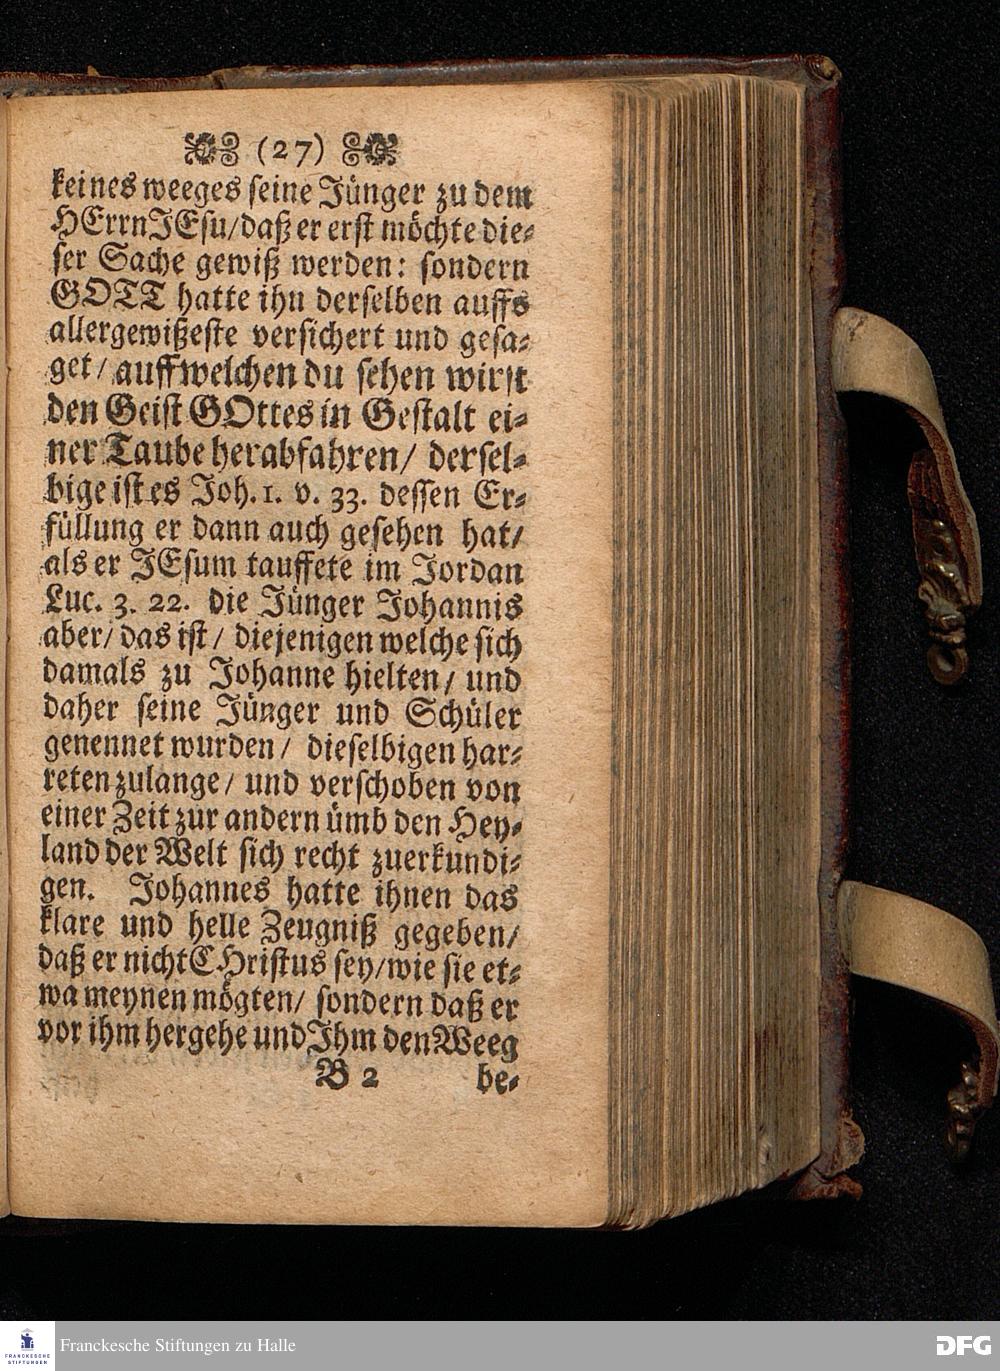 (27)
keines weeges seine Jünger zu dem
HErrn JEsu/ daß er erst möchte die-
ser Sache gewiß werden: sondern
GOTT hatte ihn derselben auffs
allergewißeste versichert und gesa-
get/ auff welchen du sehen wirst
den Geist GOttes in Gestalt ei-
ner Taube herabfahren/ dersel-
bige ist es Joh. 1. v. 33. dessen Er-
füllung er dann auch gesehen hat/
als er JEsum tauffete im Jordan
Luc. 3. 22. die Jünger Johannis
aber/ das ist/ diejenigen welche sich
damals zu Johanne hielten/ und
daher seine Jünger und Schüler
genennet wurden/ dieselbigen har-
reten zulange/ und verschoben von
einer Zeit zur andern ümb den Hey-
land der Welt sich recht zuerkundi-
gen. Johannes hatte ihnen das
klare und helle Zeugniß gegeben/
daß er nicht CHristus sey/ wie sie et-
wa meynen mögten/ sondern daß er
vor ihm hergehe und Ihm den Weeg
B 2 be-
FRANCKESCHE
STIFTUNGEN
Franckesche Stiftungen zu Halle
DFG